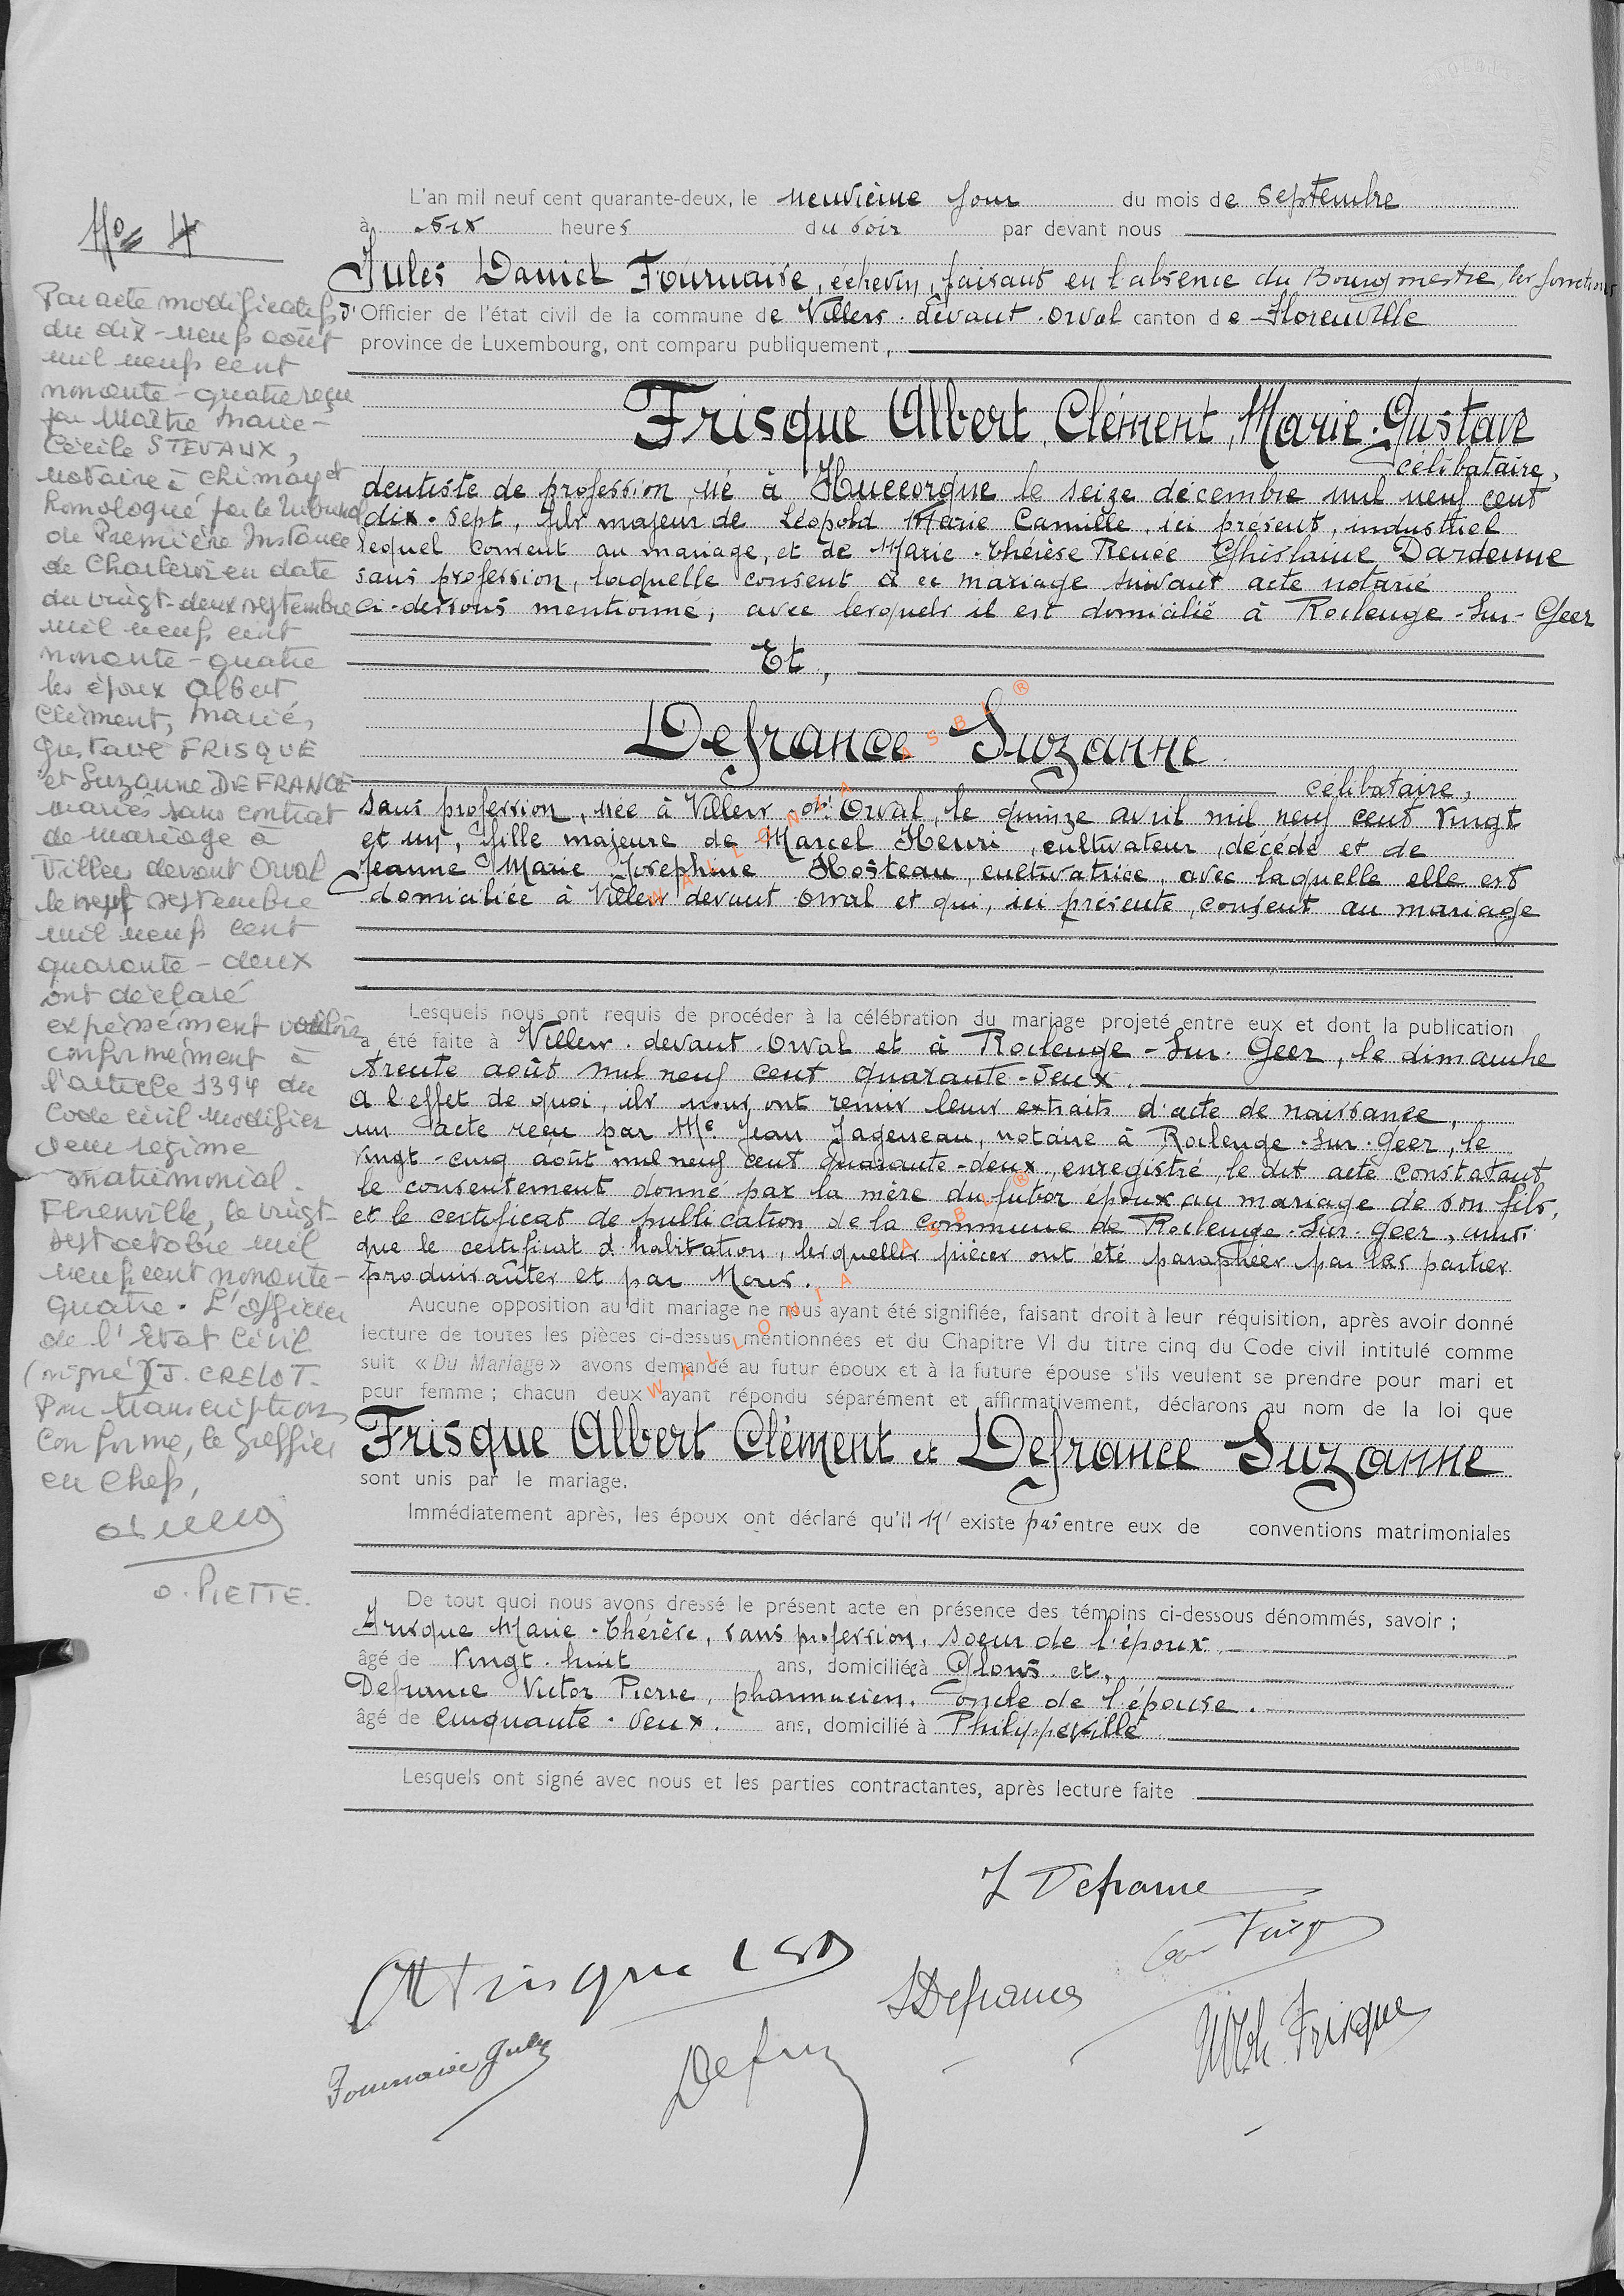 No 4
Par acte modificatif
du dix-neuf août
mil neuf cent
nonante-quatre reçu
par Maître Marie-
Cécile STEVAUX,
notaire à Chimay et
homologué par le Tribunal
de Première Instance
de Charleroi en date
du vingt-deux septembre
mil neuf cent
nonante-quatre
les époux Albert
Clément, Marie,
Gustave FRISQUE
et Suzanne DEFRANCE
mariés sans contrat
de mariage à
Villers devant Orval
le neuf septembre
mil neuf cent
quarante-deux
ont déclaré
expressément vouloir
conformément à
l'article 1394 du
Code civil modifier
leur régime
matrimonial.
Florenville, le vingt-
sept octobre mil
neuf cent nonante-
quatre. L'Officier
de l'Etat Civil
(signé) J. CRELOT.
Pour transcription
conforme, le Greffier
en Chef,
O. PIETTE.
L'an mil neuf cent quarante-deux, le neuvième jour du mois de septembre
à six heures du soir par devant nous
Jules Daniel Fournaise, échevin, faisant en l'absence du Bourgmestre, les fonctions
d'Officier de l'état civil de la commune de Villers-devant-Orval canton de Florenville
province de Luxembourg, ont comparu publiquement,
Frisque Albert, Clément, Marie-Gustave
célibataire,
dentiste de profession, né à Huccorgne le seize décembre mil neuf cent
dix-sept, fils majeur de Léopold Marie Camille, ici présent, industriel
lequel consent au mariage, et de Marie-Thérèse Renée Ghislaine Dardenne
sans profession, laquelle consent à ce mariage suivant acte notarié
ci-dessous mentionné, avec lesquels il est domicilié à Roclenge-Sur-Geer
Et,
Defrance Suzanne
célibataire,
sans profession, née à Villers-dt-Orval, le quinze avril mil neuf cent vingt
et un, fille majeure de Marcel Henri, cultivateur, décédé et de
Jeanne Marie Josephine Hosteau, cultivatrice, avec laquelle elle est
domiciliée à Villers devant Orval et qui, ici présente, consent au mariage
Lesquels nous ont requis de procéder à la célébration du mariage projeté entre eux et dont la publication
a été faite à Villers-devant-Orval et à Roclenge-Sur-Geer, le dimanche
trente août mil neuf cent quarante-deux.
A l'effet de quoi, ils nous ont remis leurs extraits d'acte de naissance,
un acte reçu par Me Jean Jageneau, notaire à Roclenge-Sur-Geer, le
vingt-cinq août mil neuf cent quarante-deux, enregistré, le dit acte constatant
le consentement donné par la mère du futur époux au mariage de son fils,
et le certificat de publication de la commune de Roclenge-Sur-Geer, ainsi
que le certificat d'habitation, lesquelles pièces ont été paraphées par les parties
produisantes et par Nous.
Aucune opposition au dit mariage ne nous ayant été signifiée, faisant droit à leur réquisition, après avoir donné
lecture de toutes les pièces ci-dessus mentionnées et du Chapitre VI du titre cinq du Code civil intitulé comme
suit « Du Mariage » avons demandé au futur époux et à la future épouse s'ils veulent se prendre pour mari et
pour femme ; chacun deux ayant répondu séparément et affirmativement, déclarons au nom de la loi que
Frisque Albert Clément et Defrance Suzanne
sont unis par le mariage.
Immédiatement après, les époux ont déclaré qu'il n'existe pas entre eux de conventions matrimoniales
De tout quoi nous avons dressé le présent acte en présence des témoins ci-dessous dénommés, savoir :
Frisque Marie-Thérèse, sans profession, soeur de l'époux
âgé de vingt-huit ans, domiciliée à Glons et,
Defrance Victor Pierre, pharmacien, oncle de l'épouse.
âgé de cinquante-deux. ans, domicilié à Philippeville
Lesquels ont signé avec nous et les parties contractantes, après lecture faite
Defrance
Frisque
SDefrance
MTh. Frisque
Fournaise Jules
WALLONIA ASBL ®
WALLONIA ASBL ®